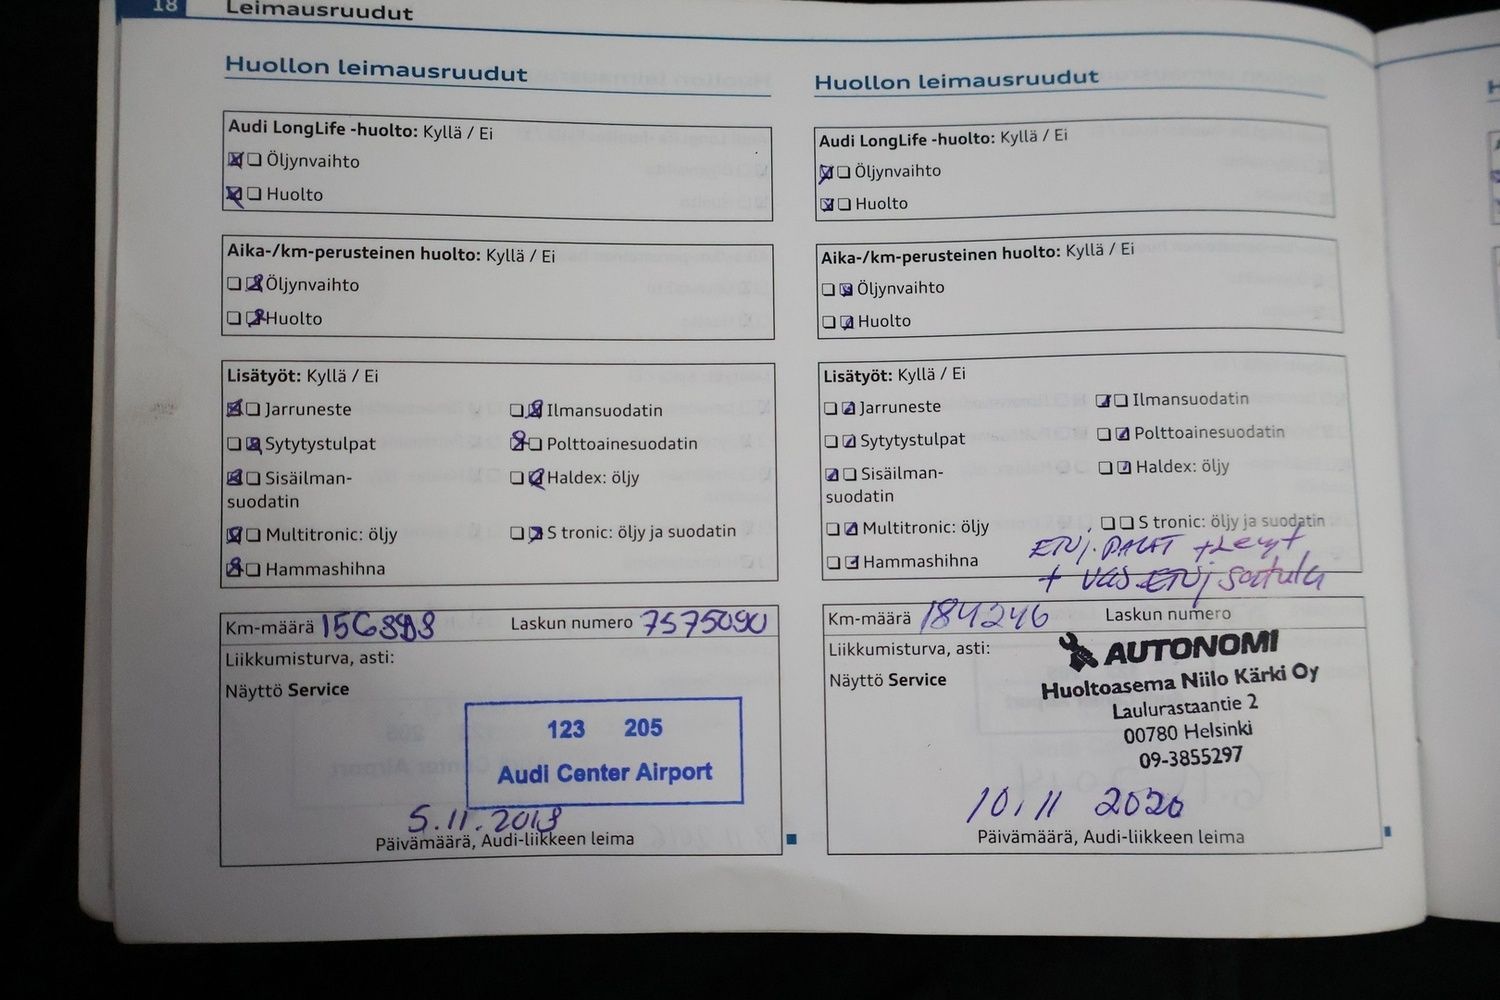 18 Leimausruudut
Huollon leimausruudut
Audi LongLife -huolto: Kyllä / Ei
Öljynvaihto
Huolto
Aika-/km-perusteinen huolto: Kyllä / Ei
Öljynvaihto
Huolto
Lisätyöt: Kyllä / Ei
Jarruneste
Ilmansuodatin
Sytytystulpat
Polttoainesuodatin
Sisäilman-
suodatin
Haldex: öljy
Multitronic: öljy
S tronic: öljy ja suodatin
Hammashihna
Km-määrä
Laskun numero 7575090
Liikkumisturva, asti:
Näyttö Service
123 205
Audi Center Airport
5.11.2018
Päivämäärä, Audi-liikkeen leima
Huollon leimausruudut
Audi LongLife -huolto: Kyllä / Ei
Öljynvaihto
Huolto
Aika-/km-perusteinen huolto: Kyllä / Ei
Öljynvaihto
Huolto
Lisätyöt: Kyllä / Ei
Jarruneste
Ilmansuodatin
Sytytystulpat
Polttoainesuodatin
Sisäilman-
suodatin
Haldex: öljy
Multitronic: öljy
S tronic: öljy ja suodatin
Hammashihna
ETUJ. PALAT +
+ ETUJ
Km-määrä 184246
Laskun numero
Liikkumisturva, asti:
Näyttö Service
AUTONOMI
Huoltoasema Niilo Kärki Oy
Laulurastaantie 2
00780 Helsinki
09-3855297
10.11 2020
Päivämäärä, Audi-liikkeen leima